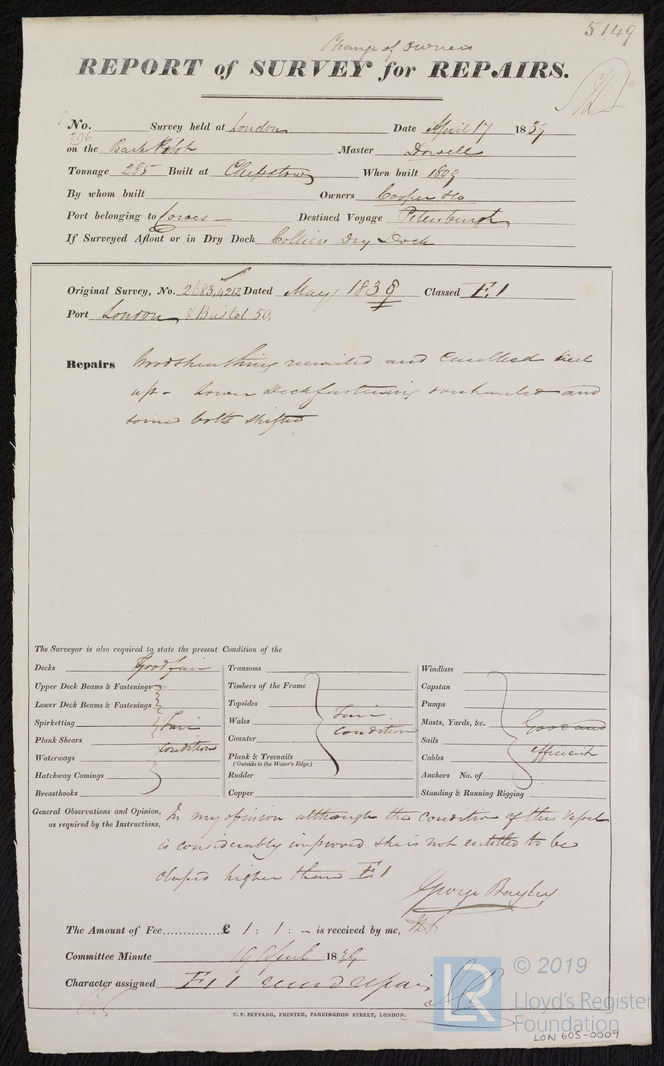 5149
Change of Owners
REPORT of SURVEY for REPAIRS.
No. 296 Survey held at London Date April 17 1839
on the Bark Master Dowell
Tonnage 285 Built at Chepstow When built 1809
By whom built Owners Cooper & Co
Port belonging to Cowes Destined Voyage Petersburgh
If Surveyed Afloat or in Dry Dock Colliers Dry Dock
Original Survey, No. 2683, 4212 Dated May 1838 Classed E.1
Port London & Bristol 50.
Repairs Woodsheathing renailed and Caulked
up - Lower Deck fastening overhauled and
some bolts shifted
The Surveyor is also required to state the present Condition of the
Decks Good fair
Upper Deck Beams & Fastenings
Lower Deck Beams & Fastenings
Spirketting Fair
Plank Shears condition
Waterways
Hatchway Comings
Breasthooks
Transoms
Timbers of the Frame
Topsides
Wales Fair
Counter condition
Plank & Treenails
(Outside to the Water's Edge)
Rudder
Copper
Windlass
Capstan
Pumps
Masts, Yards, &c. Good and
Sails efficient
Cables
Anchors No. of
Standing & Running Rigging
General Observations and Opinion, In my opinion although the condition of this Vessel
as required by the Instructions, is considerably improved she is not entitled to be
classed higher than E.1
George Bayley
The Amount of Fee.............. £ 1 : 1 : - is received by me,
Committee Minute 19 April 1839
Character assigned E 1
C. F. SEYFANG, PRINTER, FARRINGDON STREET, LONDON.
LR
© 2019
Lloyd's Register
Foundation
LON 605-0009